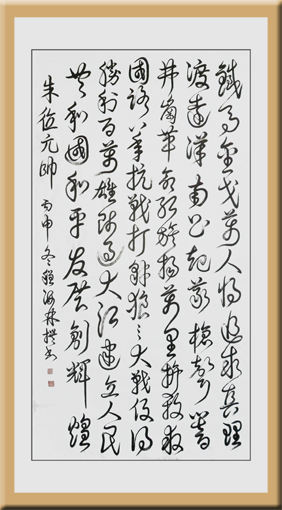 鐵馬金戈萬人將追求真理
渡遠洋南昌起義槍聲響
井崗革命紅旗揚萬里拚殺救
國路八年抗戰打豺狼三大戰役得
勝利百萬雄師過大江建立人民
共和國和平發展創輝煌
朱德元帥 丙申冬海林撰书